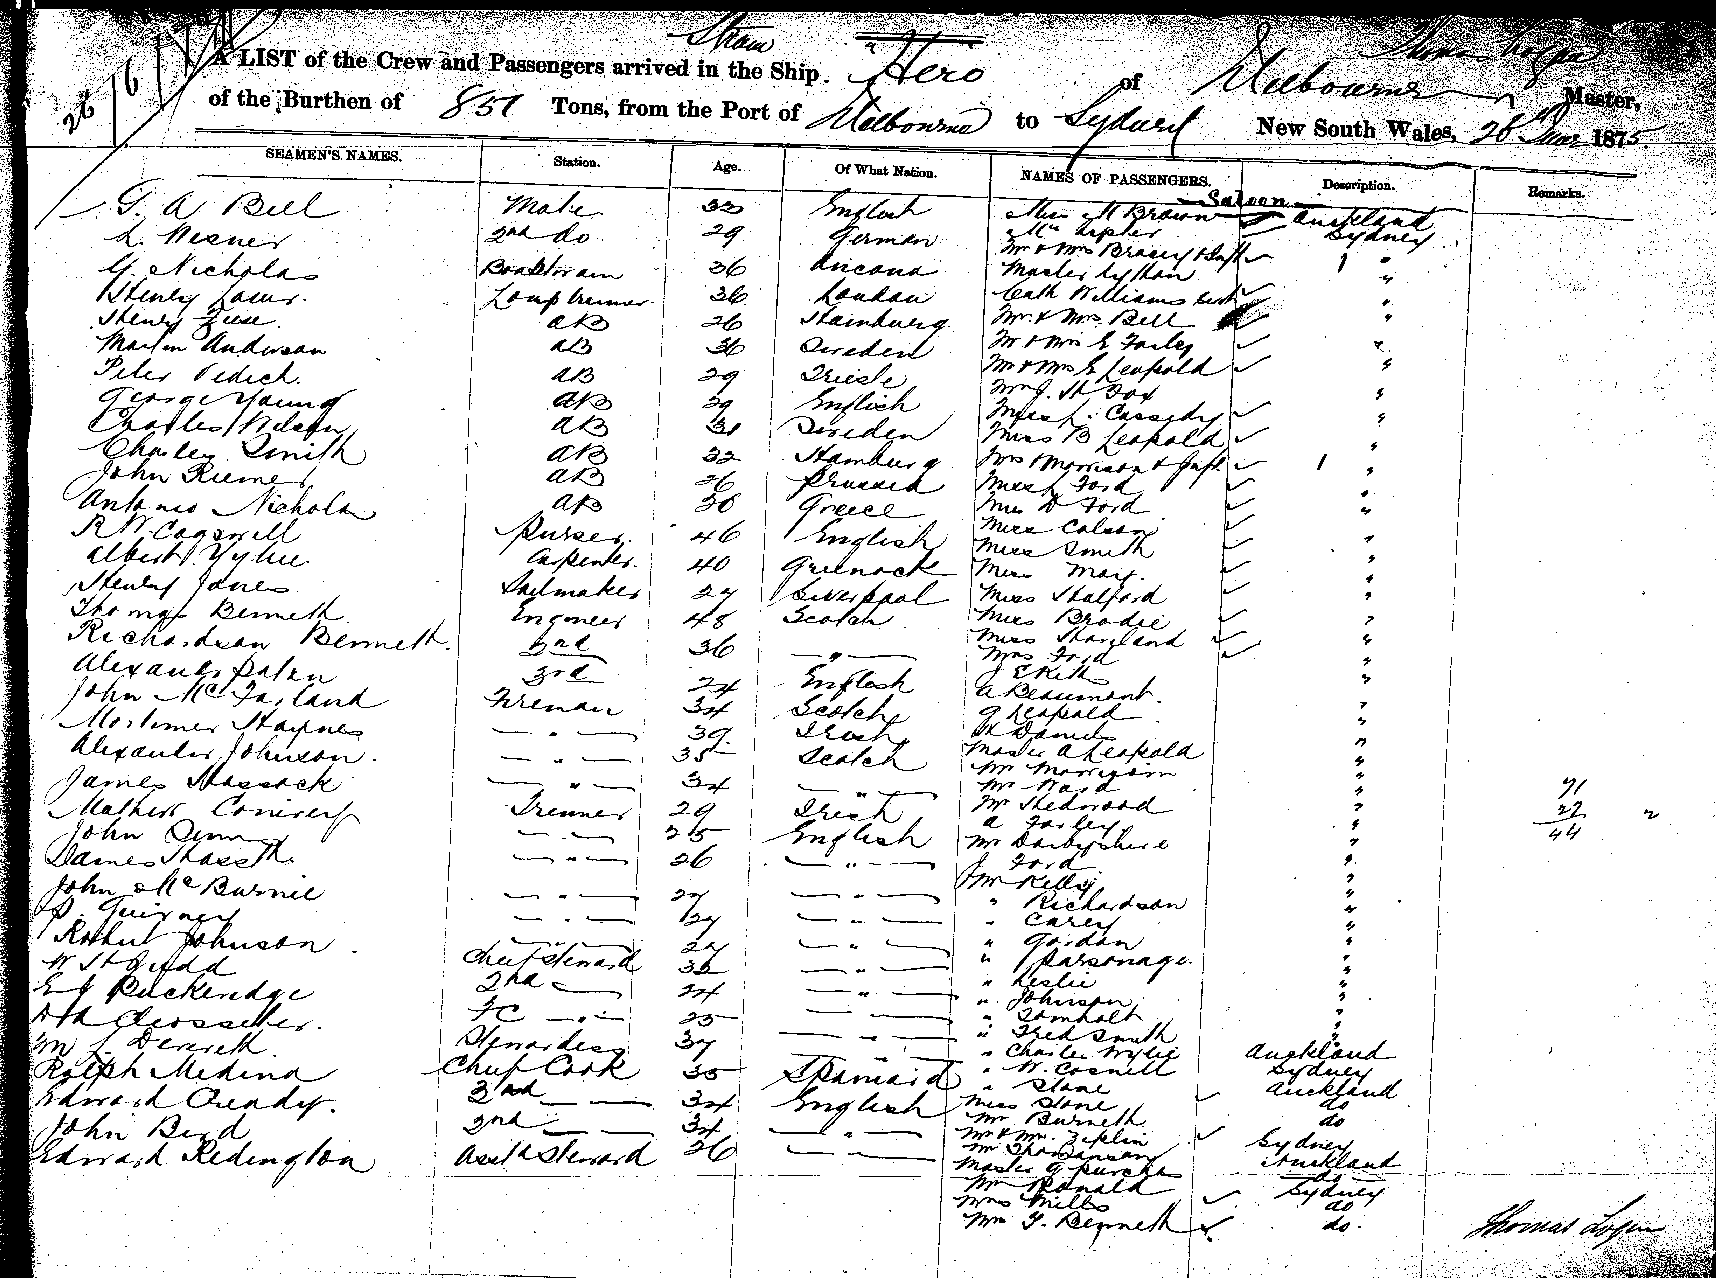 26/6
Steam
A LIST of the Crew and Passengers arrived in the Ship. "Hero of Melbourne Thomas Logan Master,
of the Burthen of 851 Tons, from the Port of Melbourne to Sydney New South Wales, 26th 1875
SEAMEN'S NAMES. Station. Age. Of What Nation. NAMES OF PASSENGERS. Description. Remarks.
Saloon
G. A Bell Mate 33 English Miss M Brown Auckland
L. Wesner 2nd do 29 German Mr Sydney
G. Nicholas Boatswain 36 Ancona Mr & Mrs Bracey & Inft 1 "
Henry Lamptrimmer 36 London Master Lyttan "
Henry AB 26 Hamburg Cath Williams "
Martin Anderson AB 36 Sweden Mr & Mrs Bell "
Peter Pedich. AB 29 Trieste Mr & Mrs E Farley "
George Young AB 29 English Mr & Mrs E Leopold "
Charles Wilson AB 31 Sweden Fox "
Charles Smith AB 32 Hamburg Miss L. Cassedy "
John Riemer AB 26 Prussia Miss B Leopold "
Antonio Nicholas AB 30 Greece Mrs Morrison & Inft 1 "
R. W. Cogswell Purser. 46 English Miss Ford "
Albert Wylie Carpenter. 40 Greenock Miss D Ford "
Henry Jones Sailmaker 27 Liverpool Miss Colson "
Thomas Bennett Engineer 48 Scotch Miss Smith "
Richardson Bennett. 2nd 36 — " — Miss May. "
Alexander Paton 3rd 24 English Miss Halford "
John McFarland Fireman 34 Scotch Miss Brodie "
Mortimer Haynes — " — 39 Irish Miss Shortland "
Alexander Johnson. — " — 35 Scotch Mrs Ford "
James Hassock — " — 34 — " — J E Kitts "
Mathew Conivery Trimmer 29 Irish A Beaumont. "
John Dunn — " — 25 English G Leopold "
James Hassett — " — 26 — " — Daniels "
John McBurnie — " — 27 — " — Master A Leopold "
P. Guirney — " — 27 — " — Mr Morrison "
Robert Johnson — " — 27 — " — Mr Ward "
W H Judd Chief Steward 32 — " — Mr Hedwood "
E J Buckeridge 2nd — 24 — " — A Farley "
F C — " — 25 — " — Mr Darbyshire "
Stewardess 37 — " — J Ford "
Ralph Medina Chief Cook 35 Spaniard Mr Kelly "
Edward Cready. 2nd — 34 English " Richardson "
John Bird 3nd — 34 — " — " Carey "
Edward Redington Asst Steward 26 — " — " Gordon "
" Parsonage. "
" Leslie "
" Johnson "
" Tomholt "
" Fred Smith "
" Charles Wylie Auckland
" W. Cosnill Sydney
" Stone Auckland
Miss Stone do
Mr Burnett do
Mr & Mrs Zeplin Sydney
Mr Thos Auckland
Master G Purchas do
Mr Ronald Sydney
Mrs Mills do
Mr F. Bennett do.
71
27
44
Thomas Logan